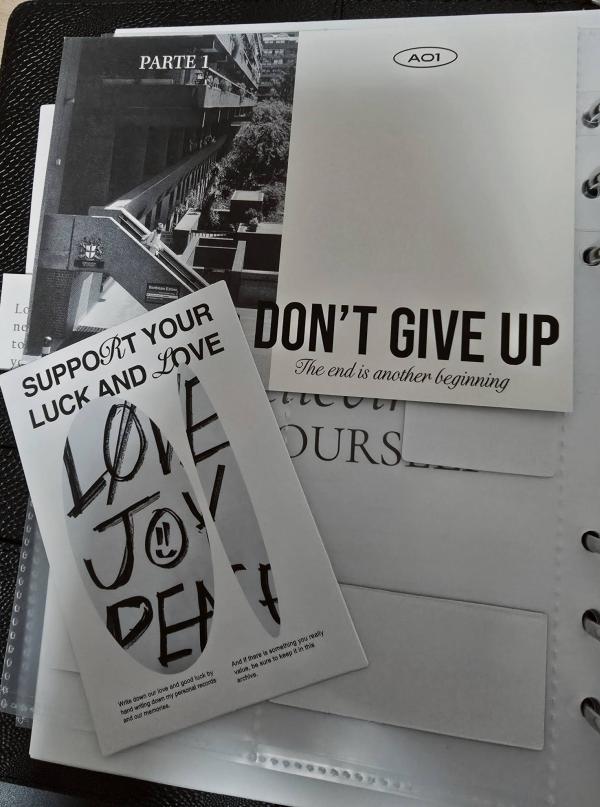 PARTE 1
A01
DON'T GIVE UP
The end is another beginning
SUPPORT YOUR
LUCK AND LOVE
LOVE
JOY
PEA
Write down our love and good luck by
hand writing down my personal records
and our memories.
And if there is something you really
value, be sure to keep it in this
archive.
YOURSELF